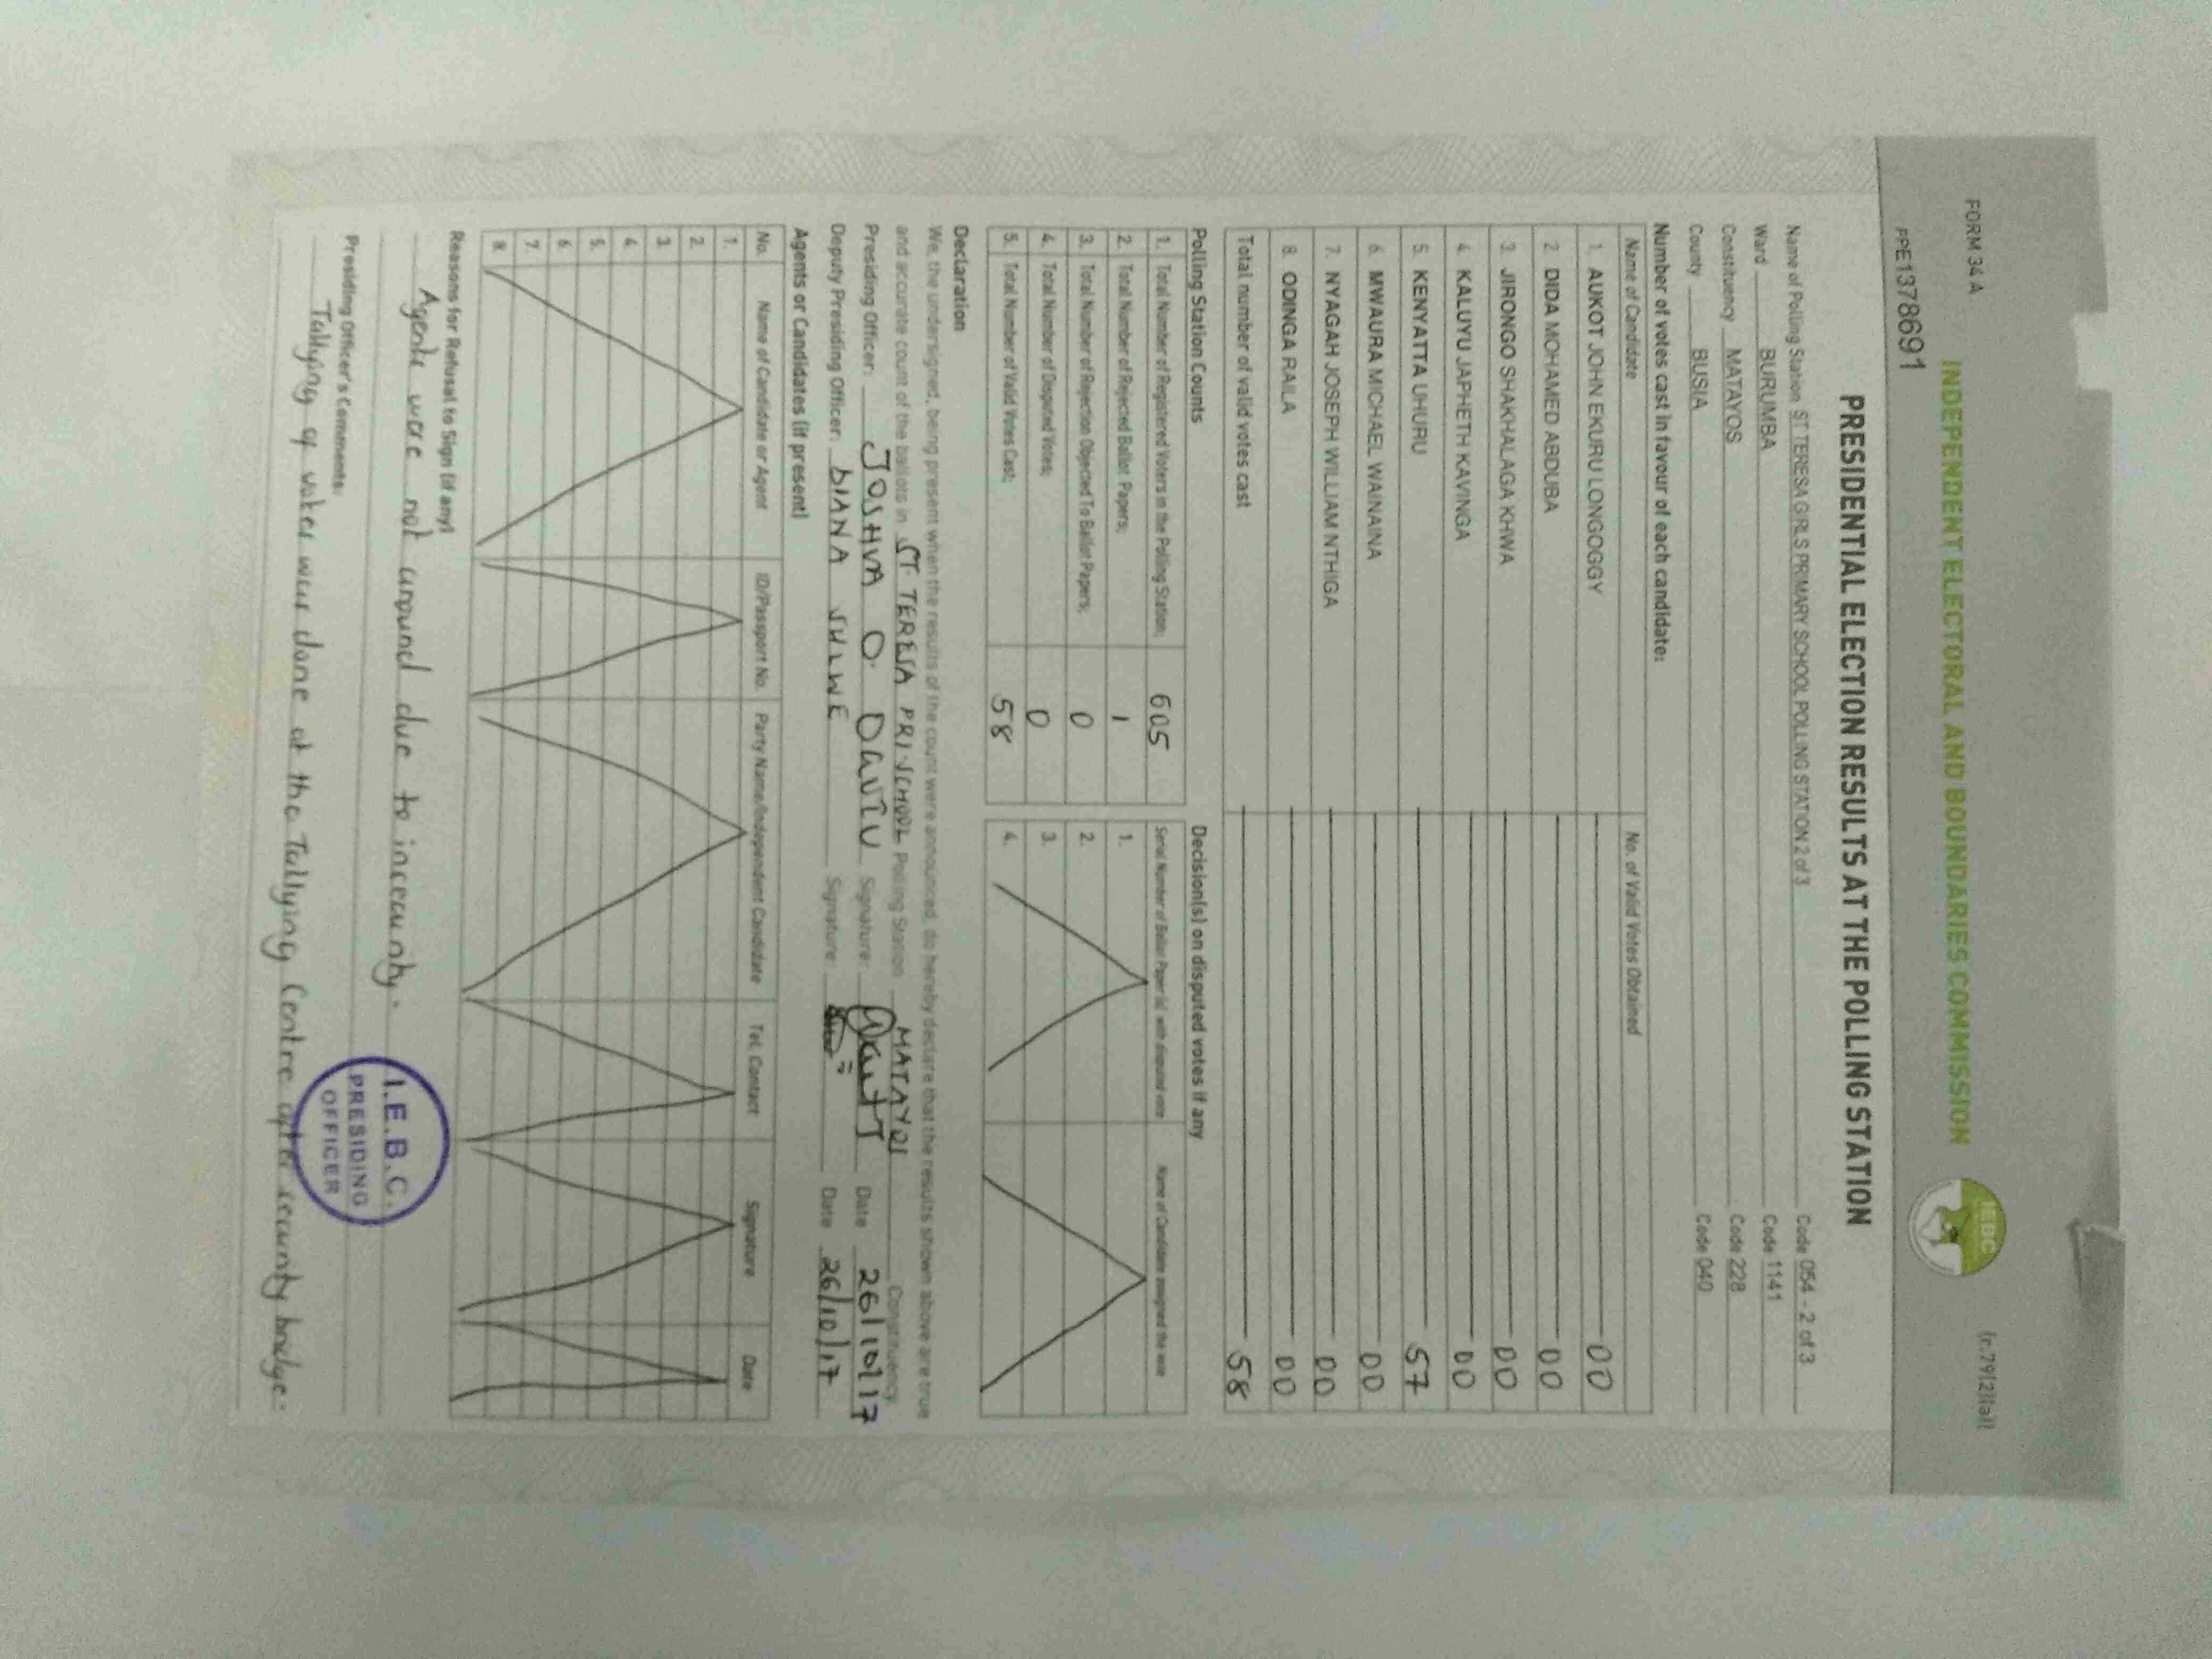 FORM 34 A
(r.79(2)(a))
INDEPENDENT ELECTORAL AND BOUNDARIES COMMISSION
IEBC
PPE1378691
PRESIDENTIAL ELECTION RESULTS AT THE POLLING STATION
Name of Polling Station ST TERESA GIRLS PRIMARY SCHOOL POLLING STATION 2 of 3 Code 054 - 2 of 3
Ward BURUMBA Code 1141
Constituency MATAYOS Code 228
County BUSIA Code 040
Number of votes cast in favour of each candidate:
Name of Candidate No. of Valid Votes Obtained
1. AUKOT JOHN EKURU LONGOGGY 00
2. DIDA MOHAMED ABDUBA 00
3. JIRONGO SHAKHALAGA KHWA 00
4. KALUYU JAPHETH KAVINGA 00
5. KENYATTA UHURU 57
6. MWAURA MICHAEL WAINAINA 00
7. NYAGAH JOSEPH WILLIAM NTHIGA 00
8. ODINGA RAILA 00
Total number of valid votes cast 58
Polling Station Counts
1. Total Number of Registered Voters in the Polling Station; 605
2. Total Number of Rejected Ballot Papers; 1
3. Total Number of Rejection Objected To Ballot Papers; 0
4. Total Number of Disputed Votes; 0
5. Total Number of Valid Votes Cast; 58
Decision(s) on disputed votes if any
Serial Number of Ballot Paper (s) with disputed vote Name of Candidate assigned the vote
1.
2.
3.
4.
Declaration
We, the undersigned, being present when the results of the count were announced, do hereby declare that the results shown above are true
and accurate count of the ballots in ST. TERESA PRI SCHOOL Polling Station MATAYOS Constituency
Presiding Officer: JOSHUA O. Signature: Date 26/10/17
Deputy Presiding Officer: DIANA Signature: Date 26/10/17
Agents or Candidates (if present)
No. Name of Candidate or Agent ID/Passport No. Party Name/Independent Candidate Tel. Contact Signature Date
1.
2.
3.
4.
5.
6.
7.
8.
Reasons for Refusal to Sign (if any)
Agents were not around due to insecurity.
Presiding Officer's Comments:
Tallying of votes was done at the Tallying Centre after security
I.E.B.C.
PRESIDING
OFFICER